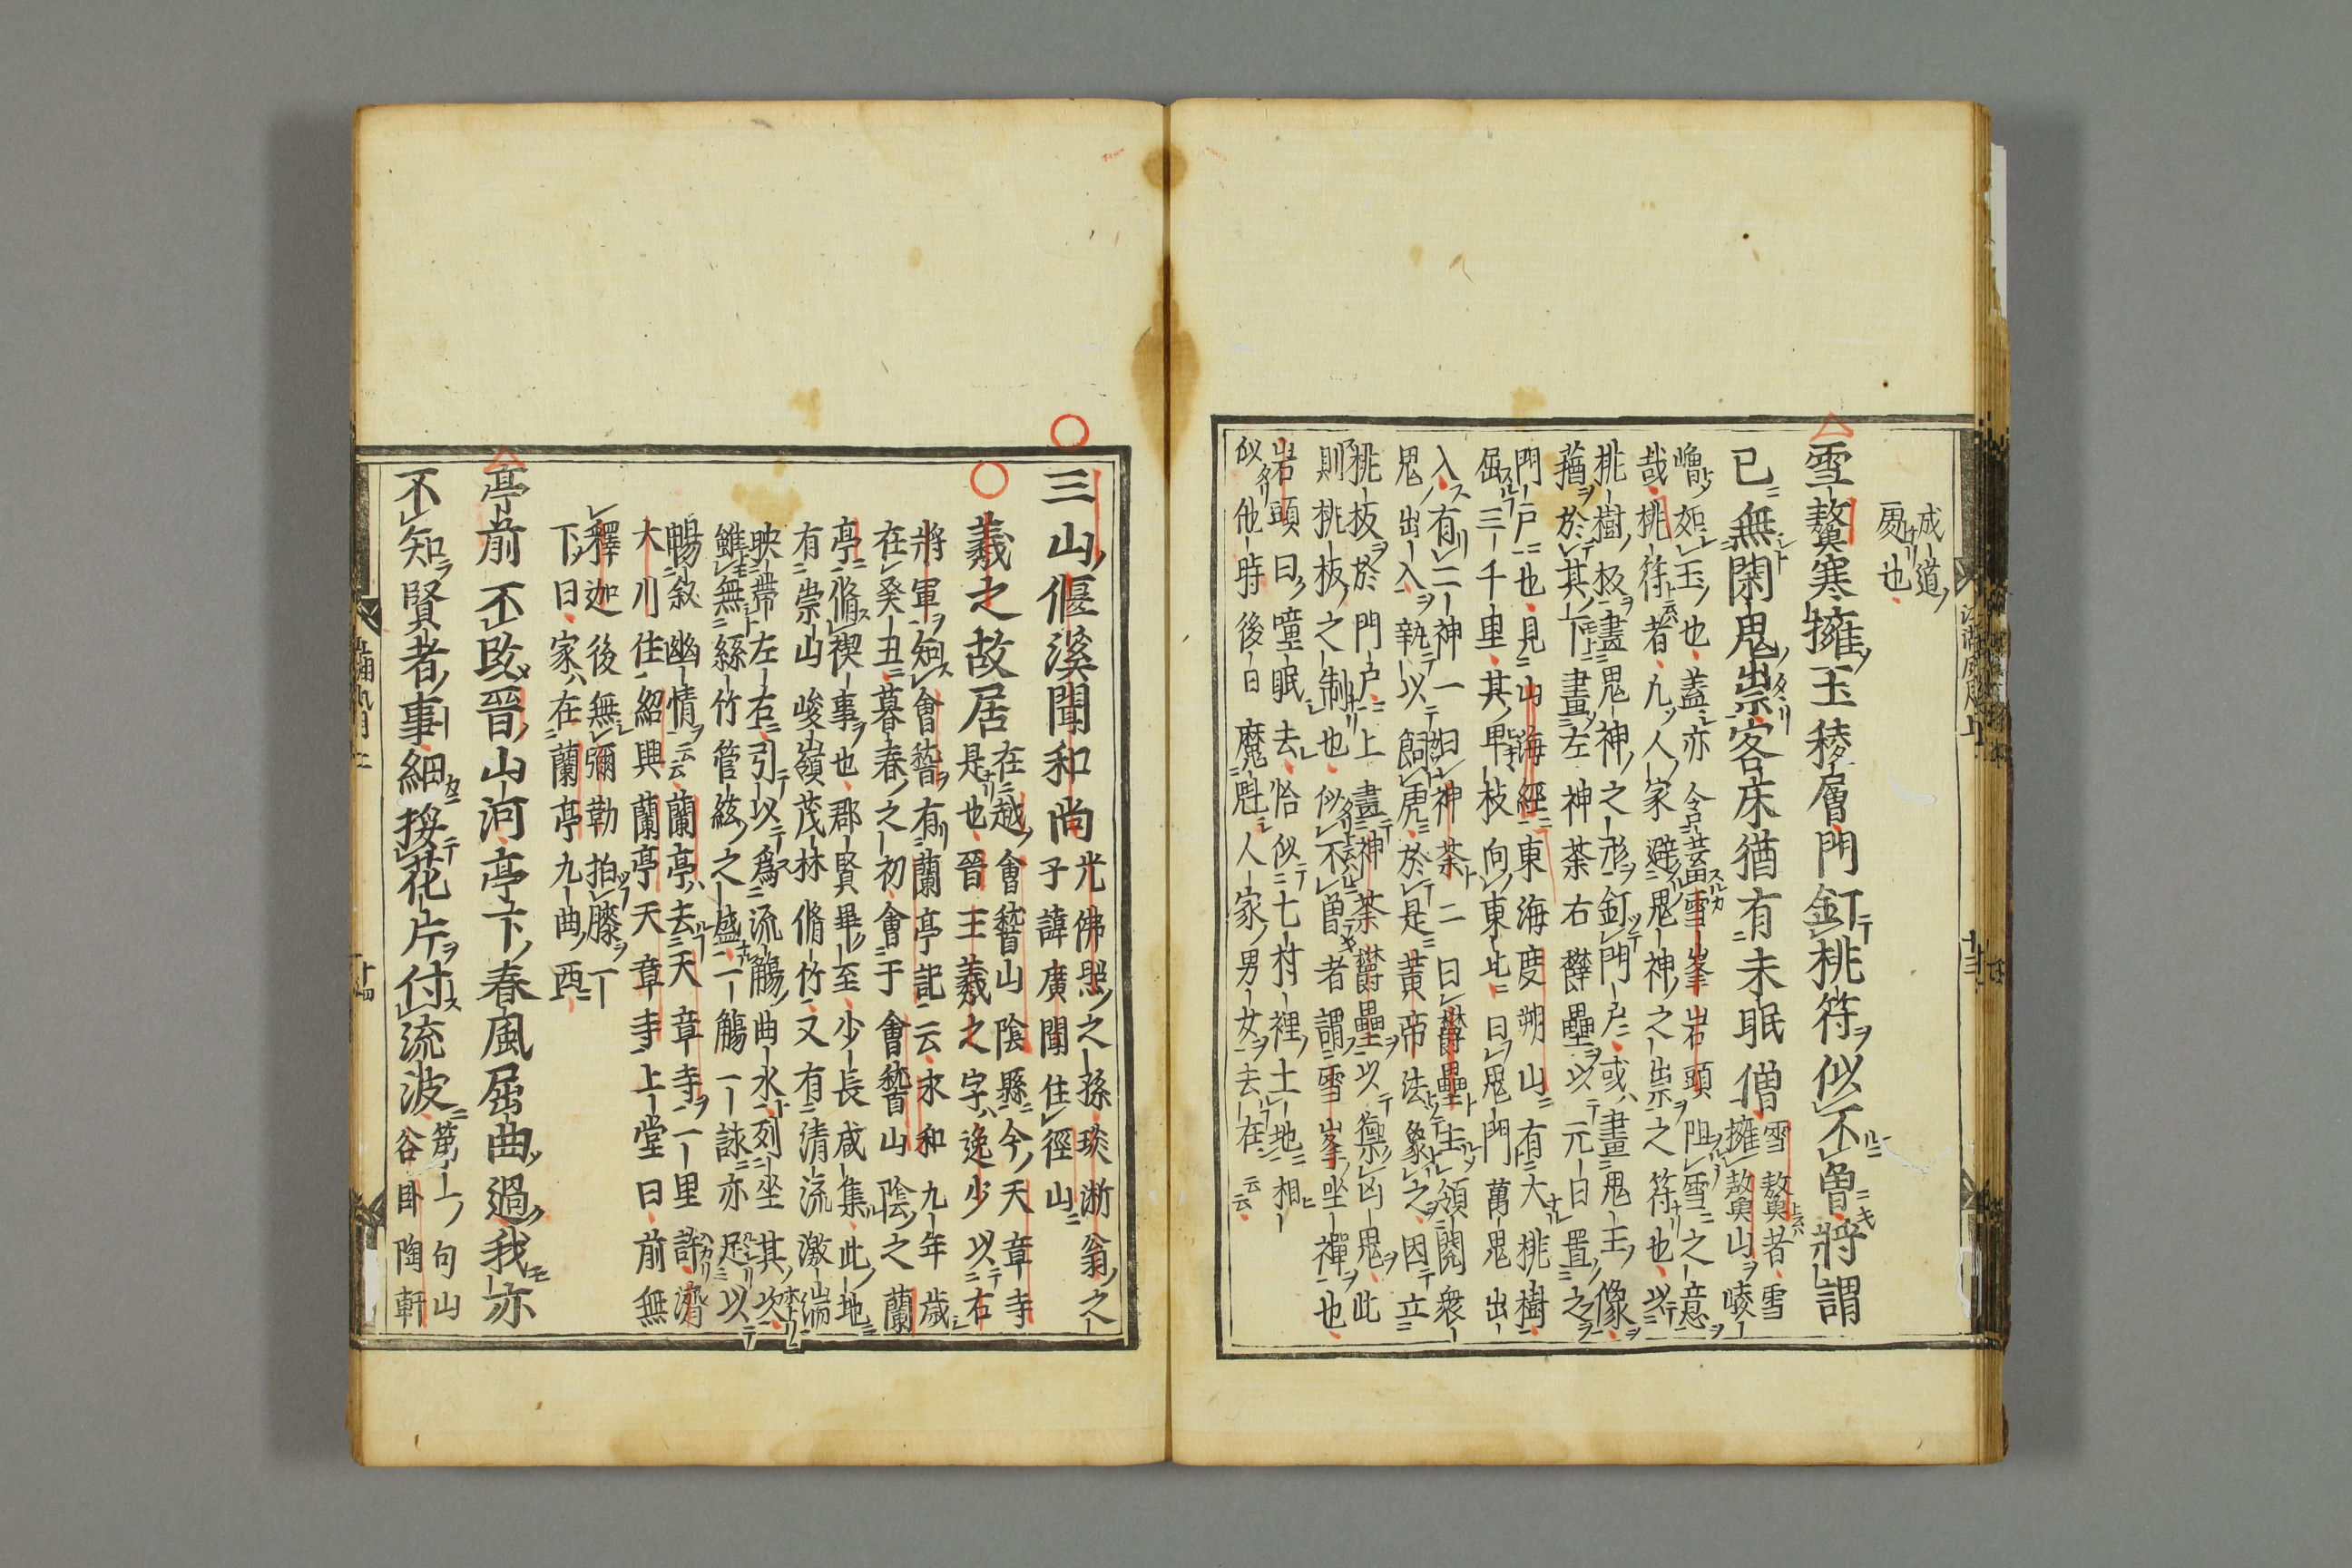 成道ノ
夙也
雪鼇寒擁玉稜層門釘桃符似不曾將謂
已無閑鬼祟客床猶有未眠僧
雪鼇者雪
擁鼇山崚
嶒如玉也蓋亦含芸苗雪峯岩頭阻雪之意
哉桃符者凡人家避鬼神之祟之符也以
桃樹板畫鬼神之形釘門戶或畫鬼王像
於其下畫左神荼右欝壘以元日置之
門戶也見山海經東海度朔山有大桃樹
屈三千里其卑枝向東北曰鬼門萬鬼出
入有二神一曰神荼二曰欝壘主領閱衆
鬼出入執以飼虎於是黃帝法象之因立
桃板於門戶上畫神荼欝壘以禦凶鬼此
則桃板之制也似不曾者謂雪峯坐禪也
岩頭曰噇眠去恰似七村裡土地相
似他時後日魔魅人家男女去在云云
三山偃溪聞和尚
光佛照之孫琰淅翁之
子諱廣聞住徑山
羲之故居
在越會稽山陰縣今天章寺
是也晉王羲之字逸少以右
將軍知會稽有蘭亭記云永和九年歲
在癸丑暮春之初會于會稽山陰之蘭
亭脩禊事也郡賢畢至少長咸集此地
有崇山峻嶺茂林脩竹又有清流激湍
映帶左右引以爲流觴曲水列坐其次
雖無絲竹管絃之盛一觴一詠亦足以
暢叙幽情云云蘭亭去天章寺一里許濟
大川住紹興蘭亭天章寺上堂曰前無
釋迦後無彌勒拍膝一
下曰家在蘭亭九曲西
亭前不改晉山河亭下春風屈曲過我亦
不知賢者事細挼花片付流波
第一句山
谷卧陶軒